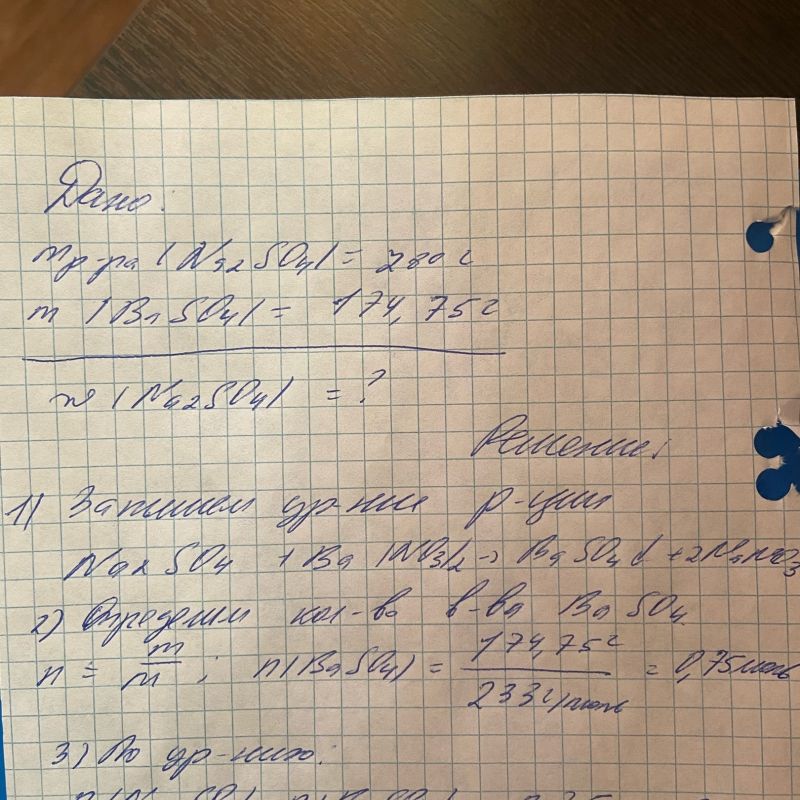 Дано:
m р-ра (Na2SO4) = 280 г
m (BaSO4) = 174,75 г
w (Na2SO4) = ?
Решение:
1) Запишем ур-ние р-ции
Na2SO4 + Ba(NO3)2 → BaSO4↓ + 2NaNO3
2) Определим кол-во в-ва BaSO4
n = m/M; n(BaSO4) = 174,75г/233г/моль = 0,75 моль
3) По ур-нию: